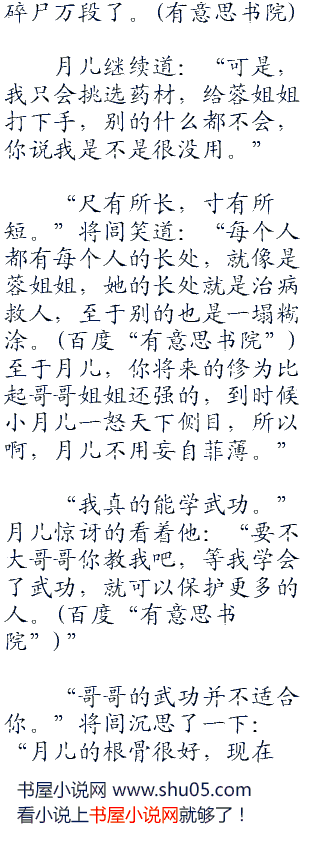 碎尸万段了。(有意思书院)
月儿继续道：“可是，
我只会挑选药材，给蓉姐姐
打下手，别的什么都不会，
你说我是不是很没用。”
“尺有所长，寸有所
短。”将闾笑道：“每个人
都有每个人的长处，就像是
蓉姐姐，她的长处就是治病
救人，至于别的也是一塌糊
涂。(百度“有意思书院”)
至于月儿，你将来的修为比
起哥哥姐姐还强的，到时候
小月儿一怒天下侧目，所以
啊，月儿不用妄自菲薄。”
“我真的能学武功。”
月儿惊讶的看着他：“要不
大哥哥你教我吧，等我学会
了武功，就可以保护更多的
人。(百度“有意思书
院”)”
“哥哥的武功并不适合
你。”将闾沉思了一下：
“月儿的根骨很好，现在
书屋小说网 www.shu05.com
看小说上书屋小说网就够了！